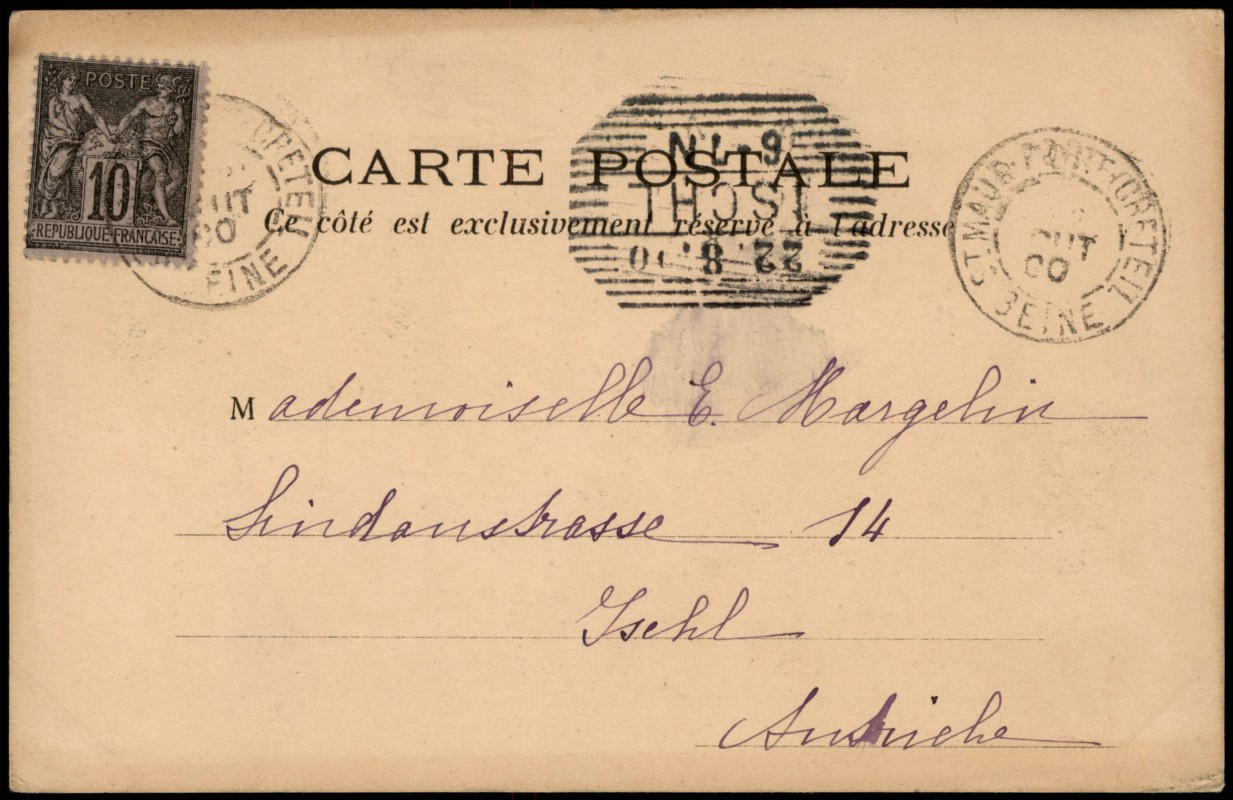 POSTE
10
REPUBLIQUE FRANÇAISE
CRETEIL
OUT
00
EINE
CARTE POSTALE
Ce côté est exclusivement réservé à l'adresse
ISCHL
22. 8. 00
ST MAUR-PONT-CRETEIL
OUT
00
SEINE
Mademoiselle E. Margelin
Lindaustrasse 14
Ischl
Autriche